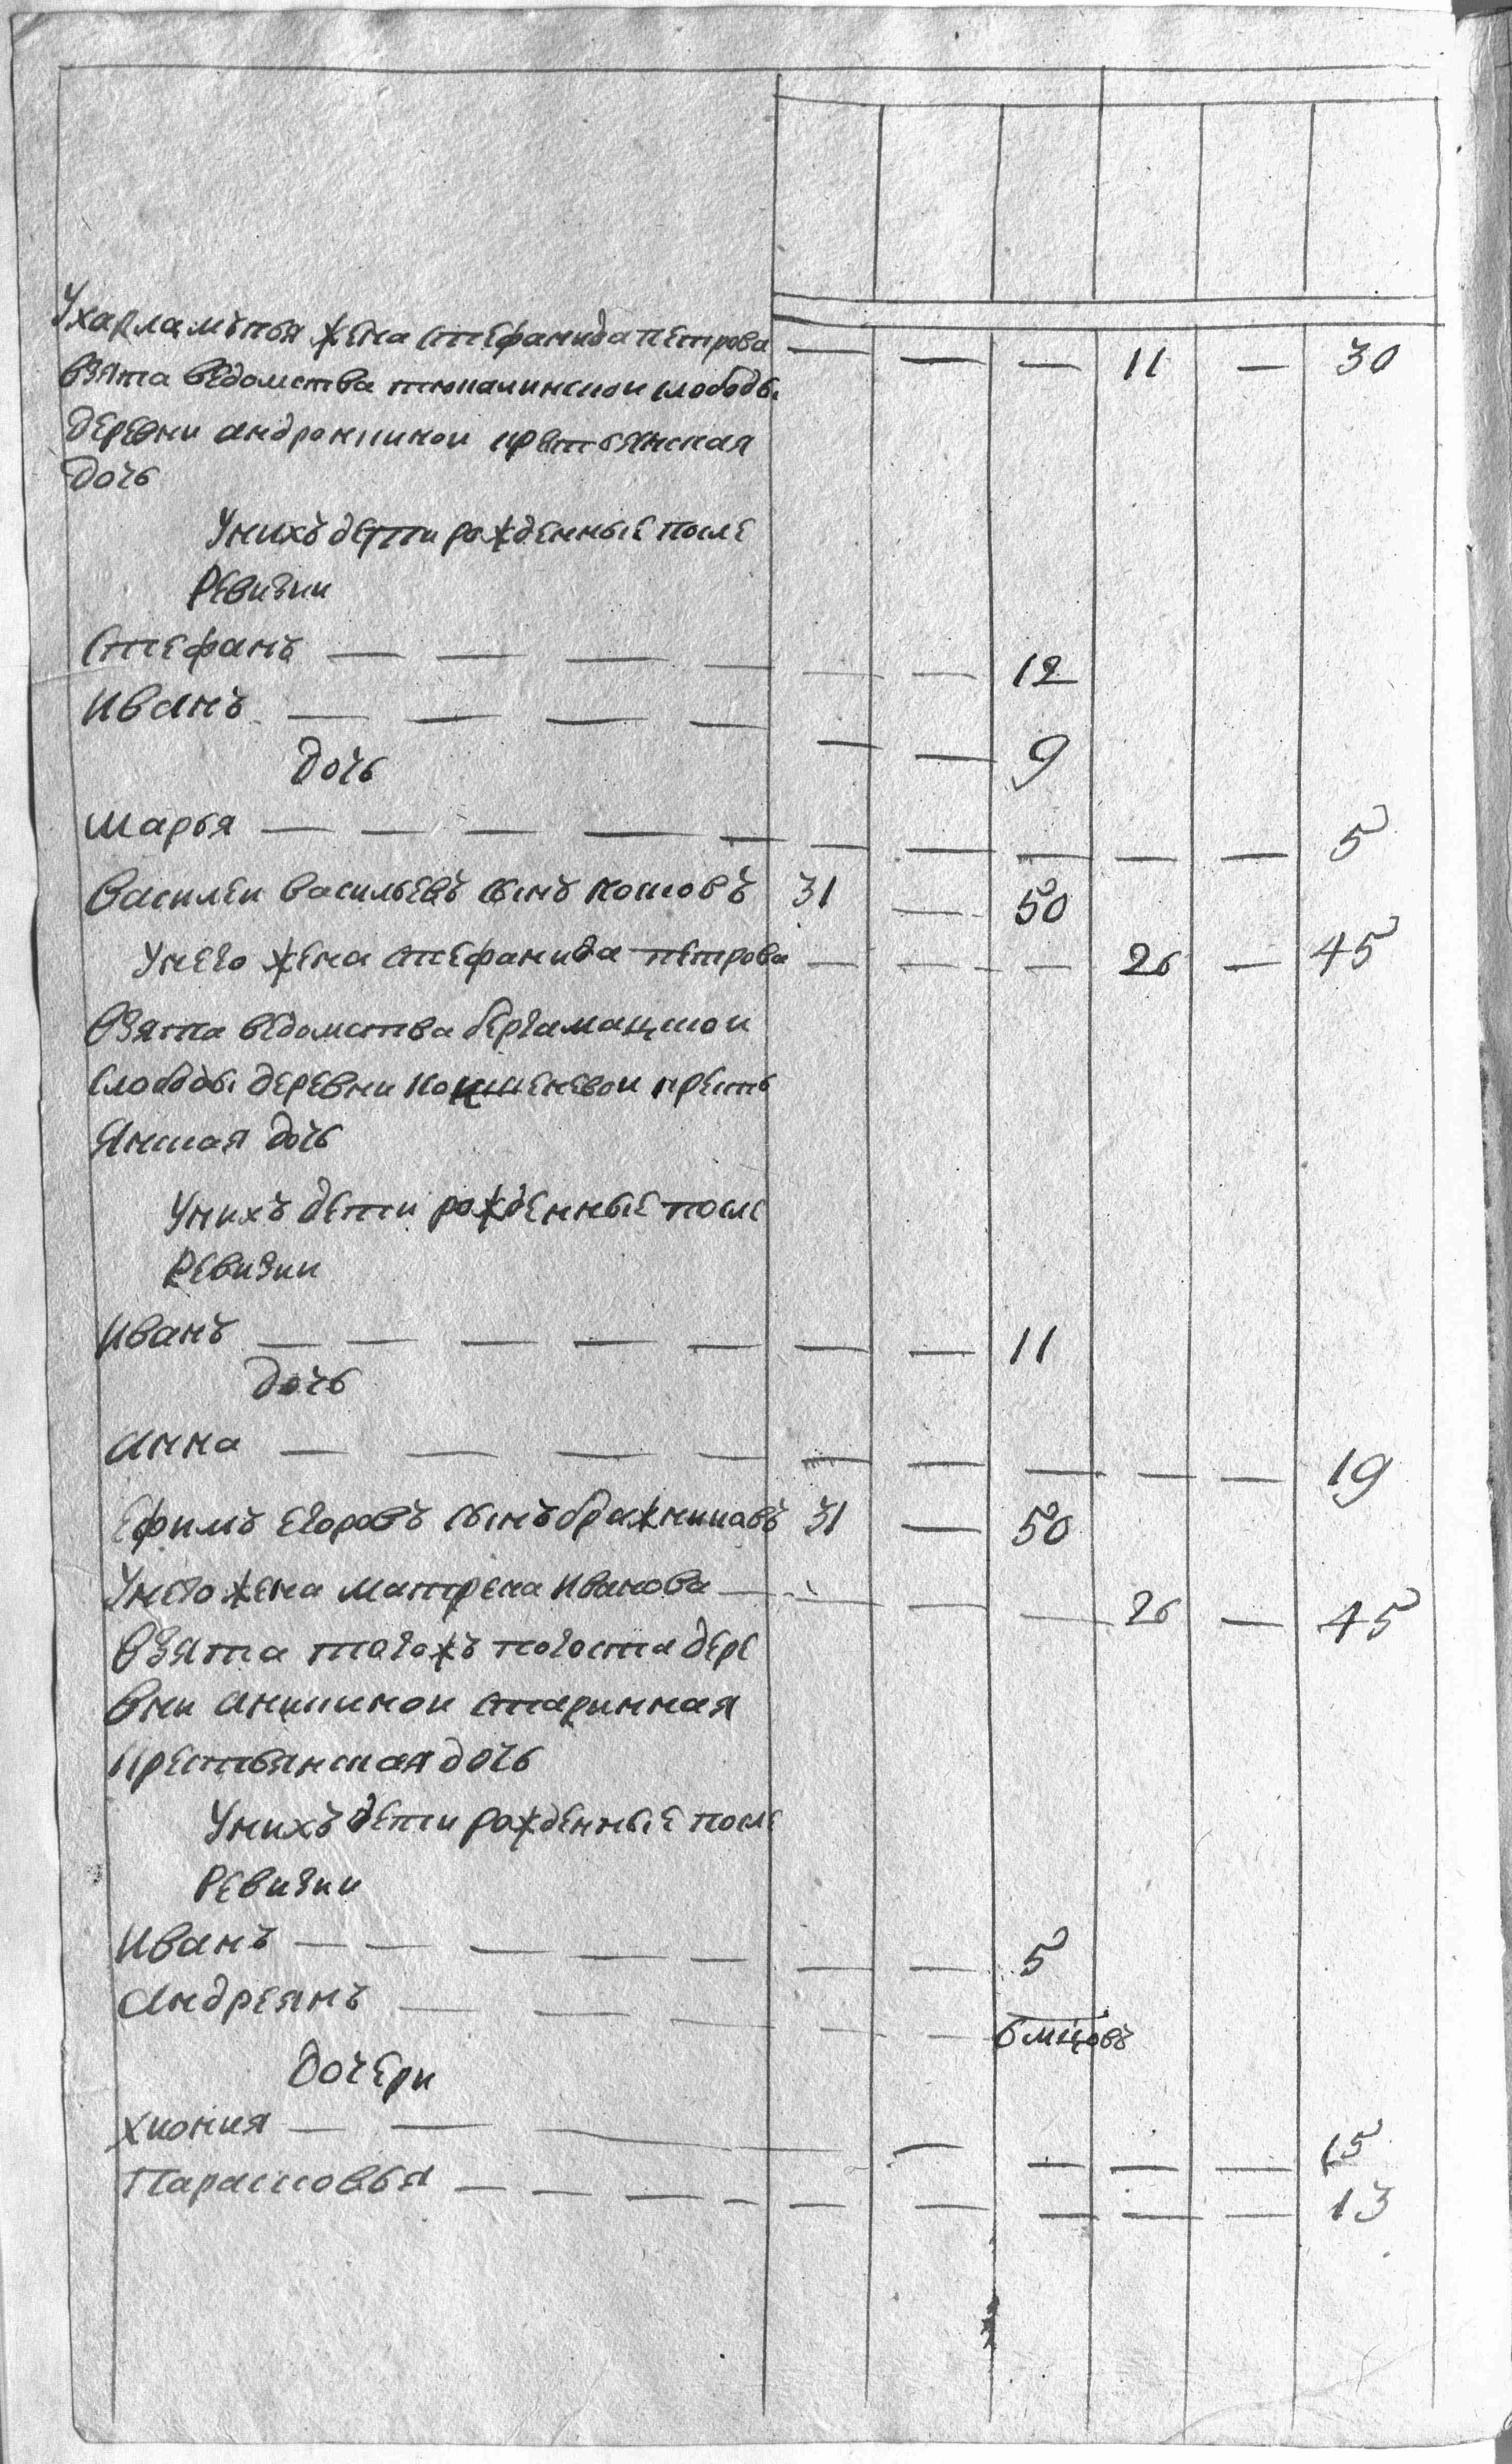 Ухарламъпья жена стефанида петрова — — — 11 — 30
взята ведомства тюкалинскои слободы
деревни андронкинои крестьянская
дочь
Унихъ дети рожденные после
Ревизии
Стефанъ — — — — — — 12
Иванъ — — — — — — 9
дочь
Марья — — — — — — — — — — 5
Василеи васильевъ сынъ котовъ 31 — 50
Унего жена стефанида петрова — — — 26 — 45
взята ведомства бергамацкои
слободы деревни кокшеневои кресть
янская дочь
Унихъ дети рожденные после
Ревизии
Иванъ — — — — — — — 11
дочь
Анна — — — — — — — — — 19
Ефимъ егоровъ сынъ бражниковъ 31 — 50
Унего жена матрена иванова — — — — 26 — 45
взята тогожъ погоста дере
вни аникинои старинная
крестьянская дочь
Унихъ дети рожденные после
Ревизии
Иванъ — — — — — — — 5
Андреянъ — — — — — 6 мцовъ
дочери
Хиония — — — — — — — 15
Парасковья — — — — — — — — — 13